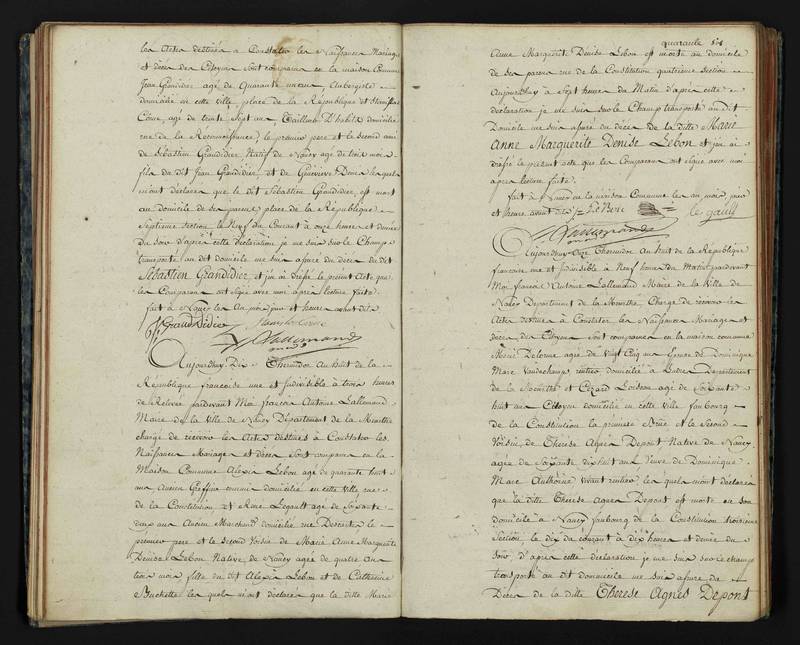 les Actes destinés a Constater les Naissances Mariages
et décès des Citoyens sont comparus en la maison Commune
Jean Grandidier agé de Quarante neuf ans, Aubergiste
domicilié en cette ville place de la République et Stanislas
agé de trente sept ans, Tailleur D'habits domicilié
rue de la Reconnaissance, le premier pere et le second ami
de Sébastien Grandidier Natif de Nancy agé de trois mois
fils du dit Jean Grandidier, et de Geneviève lesquels
m'ont déclarés que le dit Sébastien Grandidier, est mort
au domicile de ses parens place de la République
Septieme section le Neuf du Courant a onze heures et demie
du soir d'après cette déclaration je me suis sur le Champ
transporté au dit domicile me suis assuré du décès du dit
Sébastien Grandidier et j'en ai dressé le présent Acte que
les Comparans ont signé avec moi après lecture faite.
fait à Nancy les An mois jour et heures avant dits
J Grandidier
Lallemand
Aujourdhuy Dix Thermidor An huit de la
République francaise une et Indivisible à trois heures
de Relevée pardevant Moi francois Antoine Lallemand
Maire de la Ville de Nancy Département de la Meurthe
chargé de recevoir les Actes destinés à Constater les
Naissances Mariages et décès Sont comparus en la
Maison Commune Alexis Lebon agé de quarante huit
ans Ancien Greffier commis domicilié en cette ville rue
de la Constitution et René Legault agé de soixante
deux ans Ancien Marchand domicilié rue Descartes le
premier pere et le Second Voisin de Marie Anne Marguerite
Denise Lebon Native de Nancy agée de quatre ans
trois mois fille du dit Alexis Lebon et de Catherine
les quels m'ont déclarés que la ditte Marie
quarante six
Anne Margueritte Denise Lebon est morte au domicile
de ses parens rue de la Constitution quatrieme section
Aujourdhuy à Sept heures du Matin d'après cette
déclaration je me suis sur le Champ transporté au Dit
Domicile me suis assuré du décès de la ditte Marie
Anne Marguerite Denise Lebon et j'en ai
dressé le présent acte que les Comparans ont signé avec moi
après lecture faite.
fait à Nancy en la maison Commune les an mois, jour
et heures avant dits
le gault
Lallemand
Aujourdhuy Onze Thermidor An huit de la République
francaise une et indivisible à Neuf heures du Matin pardevant
Moi francois Antoine Lallemand Maire de la Ville de
Nancy Departement de la Meurthe Chargé de recevoir les
Actes destinés à Constater les Naissances Mariages et
décès des Citoyens sont comparus en la maison commune
Marie Delorme agée de Vingt Cinq ans Epouse de Dominique
Marc Vandechamp rentier domicilié à Ludres Departement
de la Meurthe et Cézard Loison agé de Soixante
huit ans Citoyen domicilié en cette ville faubourg
de la Constitution la premiere et le Second
Voisin, de Thérèse Agnès Depont Native de Nancy
agée de Soixante dix huit ans Veuve de Dominique
Marc vivant rentier les quels m'ont déclarés
que la ditte Thérèse Agnès Depont est morte en son
domicile à Nancy faubourg de la Constitution troisieme
Section le dix du courant à dix heures et demie du
soir d'après cette déclaration je me suis sur le champ
transporté au dit domicile me suis assuré du
Décès de la ditte Thérèse Agnès Depont